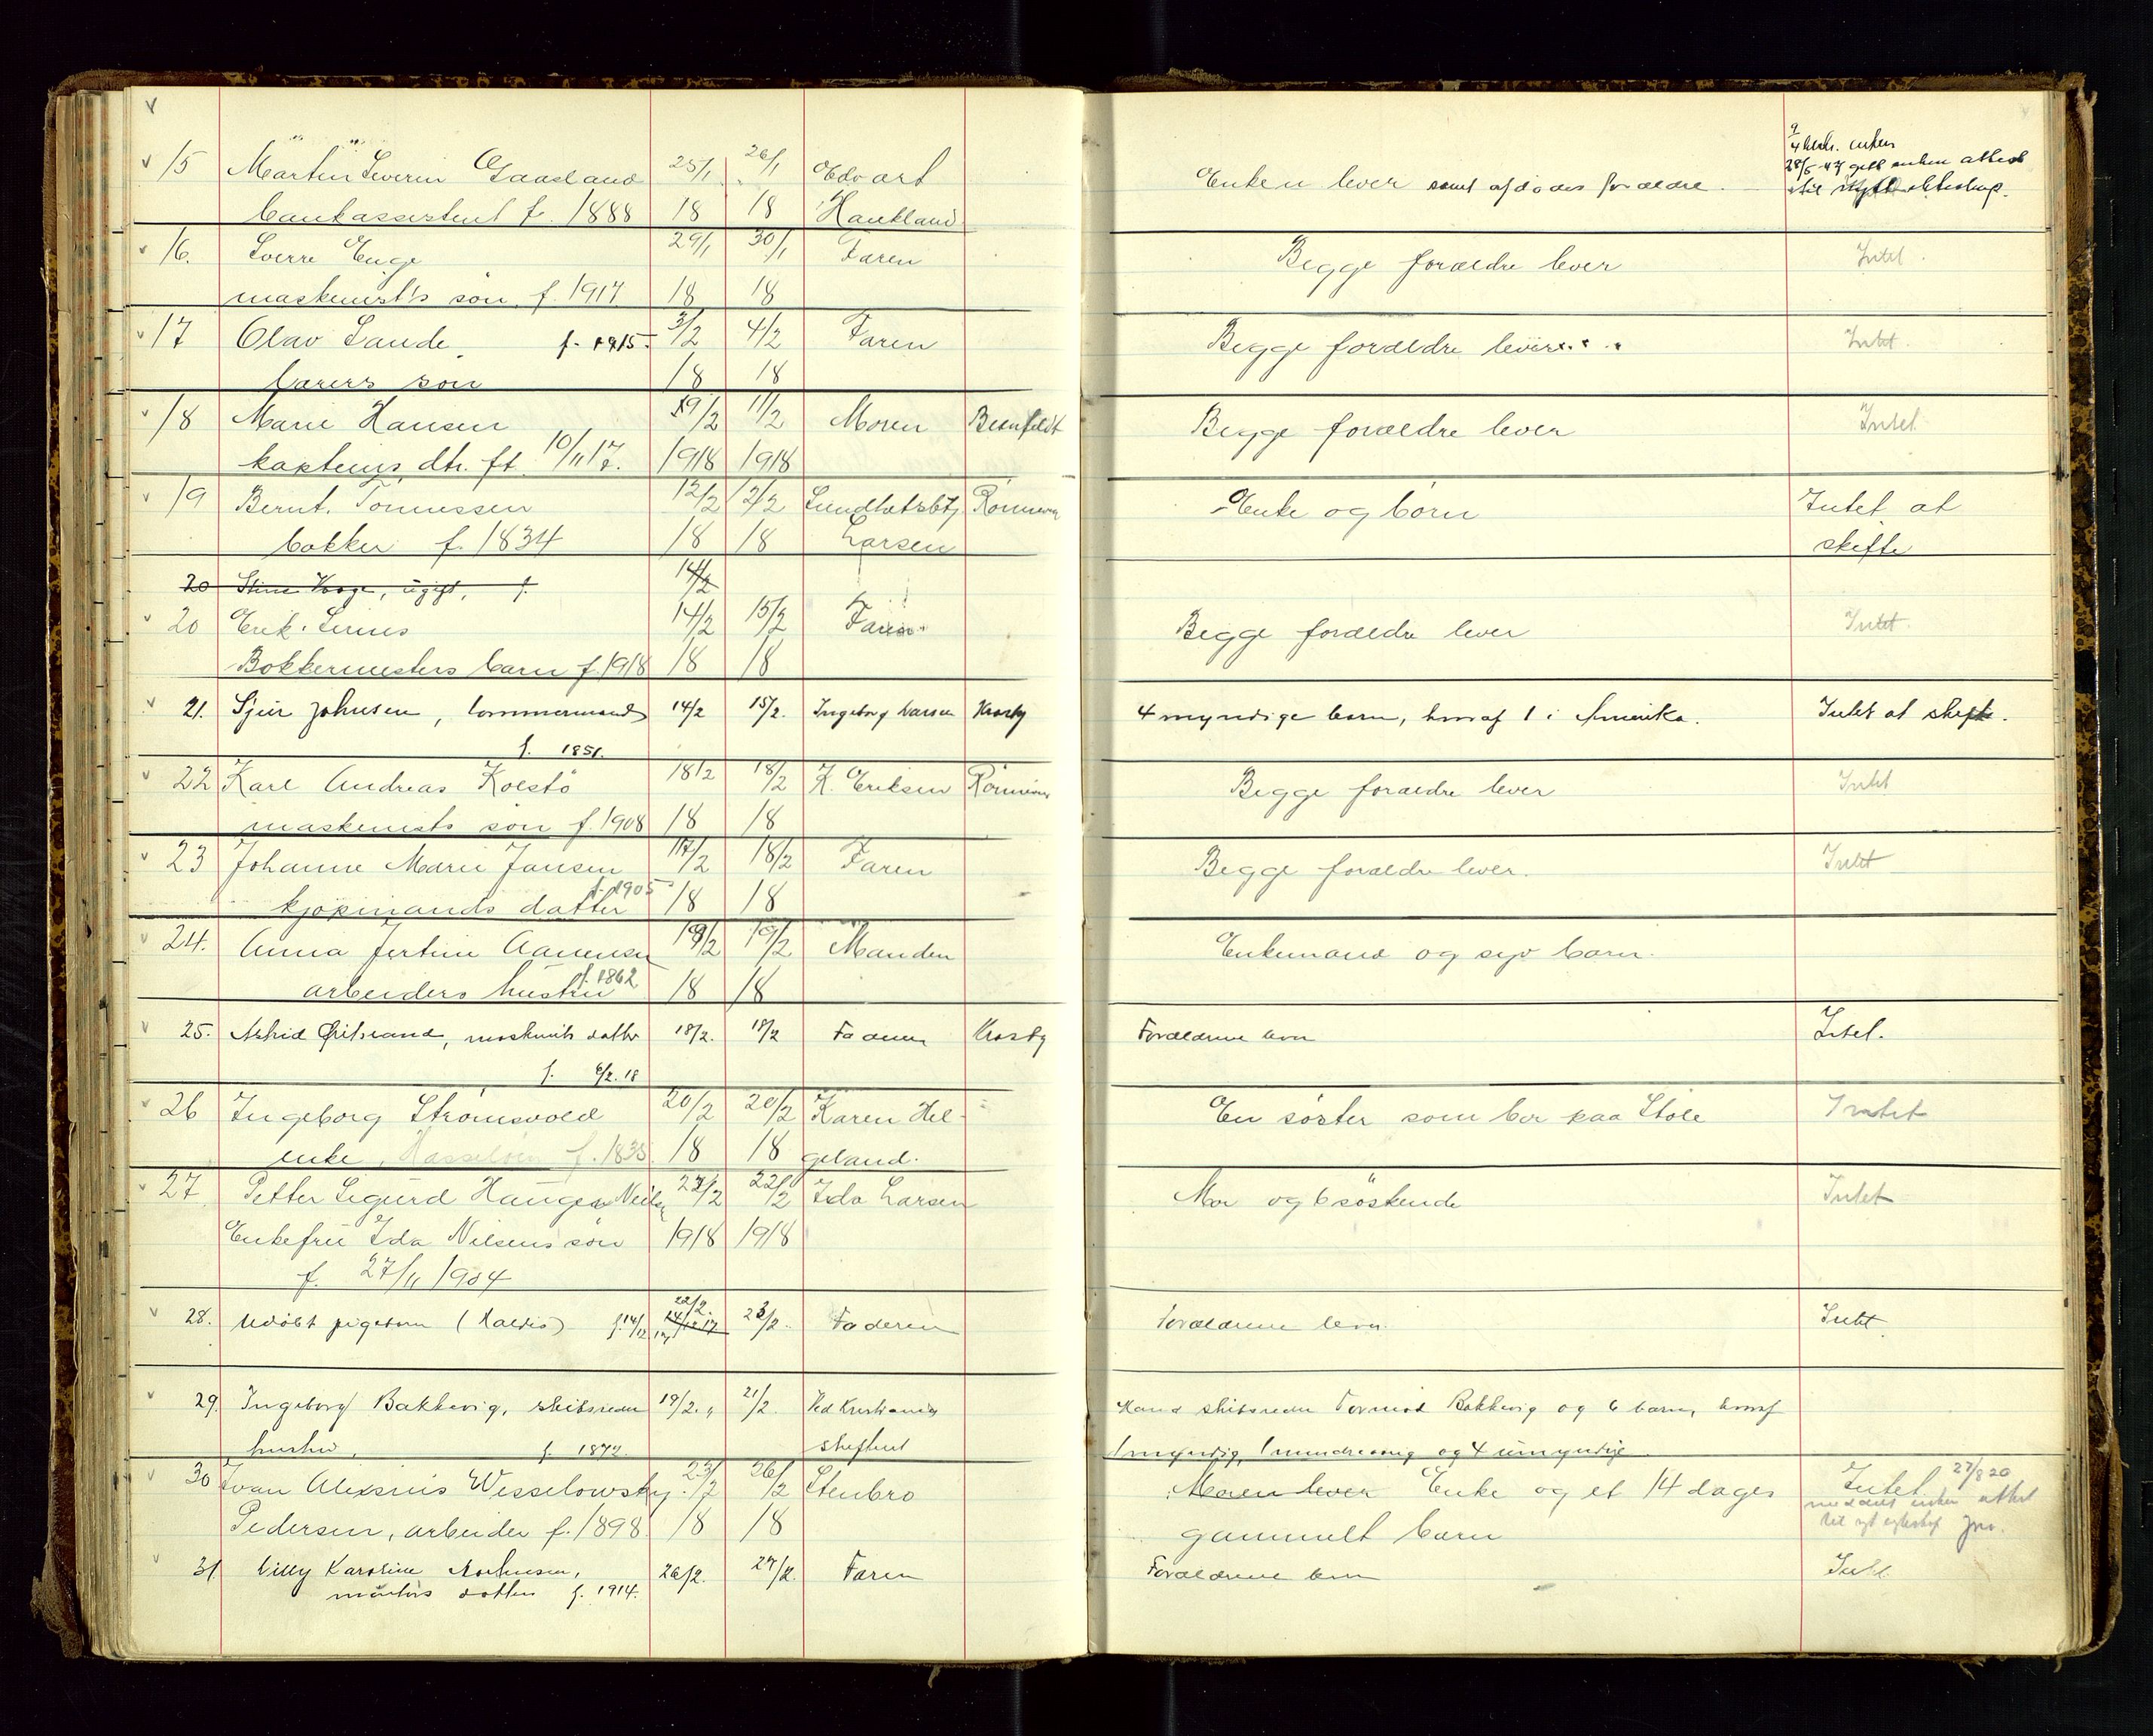 15 Martin Severin Gaasland 25/1 26/1 Edvart Enken lever samt afdødes forældre.
bankassistent f. 1888 18 18 Haukland
28/5-43 gitt enken attest
til nytt ekteskap.
16. Sverre Enge 29/1 30/1 Faren Begge forældre lever Intet.
maskinist's søn f. 1917 18 18
17 Olav Sande. f. 1915. 3/2 4/2 Faren Begge forældre lever Intet.
bærers søn 18 18
18 Marie Hansen 9/2 11/2 Moren Bernfeldt Begge forældre lever Intet
kapteins dtr. ft. 10/11 17. 1918 1918
19 Bernt. Tønnessen 12/2 12/2 Rønnevig Enke og børn Intet at
bøkker f. 1834 18 18 Larsen skifte
20 Stine Haage, ugift, f. 14/2
20 Erik. 14/2 15/2 Faren Begge forældre lever Intet.
Bøkkermesters barn f. 1918 18 18
21. Sjur Johnsen, tømmermand 14/2 15/2. Ingeborg Larsen Krosby 4 myndige børn, hvoraf 1 i Amerika. Intet at skifte.
f. 1851.
22 Karl Andreas Kolstø 18/2 18/2 K. Eriksen Rønnevig Begge forældre lever Intet
maskinists søn f. 1908 18 18
23 Johanne Marie Jansen 17/2 18/2 Faren Begge forældre lever. Intet
kjøpmands datter f. 1905 18 18
24. Anna Jertine Aanensen 18/2 19/2 Manden Enkemand og syv børn.
arbeiders hustru f. 1862 18 18
25. Astrid Gritsrand, maskinists datter 18/2. 18/2 Faderen Krosby Forældrene lever Intet.
f. 6/2. 18
26 Ingeborg Strømsvold 20/2 20/2 Karen Hel- En søster som bor paa Stole Intet
enke, Hasseløen f. 1835. 18 18 geland.
27 Petter Sigurd Haugen Nilsen 22/2 22/2 Ida Larsen Mor og 6 søskende Intet
Enkefru Ida Nilsens søn 1918 1918
f. 27/11 1904
28. Udøbt pigebarn (Valdis) f. 14/12 17 22/2. 23/2. Faderen Forældrene lever. Intet
29. Ingeborg Bakkevig, skibsreder 19/2. 21/2. Ved Kristiania Mand skibsreder Tormod Bakkevig og 6 børn, hvoraf
hustru, f. 1872. skifteret 1 myndig, 1 mindreaarig og 4 umyndige.
30 Ivan Alexius Wesselowsky 23/2 26/2 Stenbro Moren lever Enke og et 14 dages Intet 27/8 20
Pedersen, arbeider f. 1898. 18 18 gammelt barn meddelt enken attest
til nyt egteskap
31 Willy Karoline 26/2. 27/2. Faren Forældrene lever Intet
murers datter f. 1914.